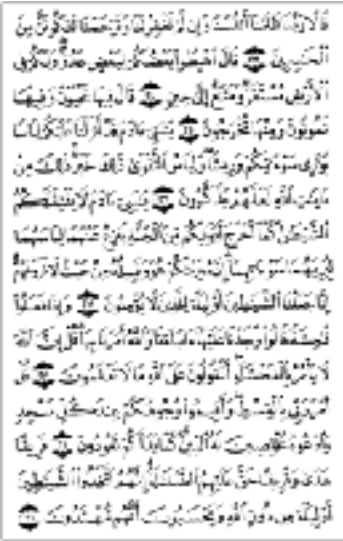 قَالَا رَبَّنَا ظَلَمْنَا أَنفُسَنَا وَإِن لَّمْ تَغْفِرْ لَنَا وَتَرْحَمْنَا لَنَكُونَنَّ مِنَ
ٱلْخَٰسِرِينَ قَالَ ٱهْبِطُوا۟ بَعْضُكُمْ لِبَعْضٍ عَدُوٌّ وَلَكُمْ فِى
ٱلْأَرْضِ مُسْتَقَرٌّ وَمَتَٰعٌ إِلَىٰ حِينٍ قَالَ فِيهَا تَحْيَوْنَ وَفِيهَا
تَمُوتُونَ وَمِنْهَا تُخْرَجُونَ يَٰبَنِىٓ ءَادَمَ قَدْ أَنزَلْنَا عَلَيْكُمْ لِبَاسًا
يُوَٰرِى سَوْءَٰتِكُمْ وَرِيشًا وَلِبَاسُ ٱلتَّقْوَىٰ ذَٰلِكَ خَيْرٌ ذَٰلِكَ مِنْ
ءَايَٰتِ ٱللَّهِ لَعَلَّهُمْ يَذَّكَّرُونَ يَٰبَنِىٓ ءَادَمَ لَا يَفْتِنَنَّكُمُ
ٱلشَّيْطَٰنُ كَمَآ أَخْرَجَ أَبَوَيْكُم مِّنَ ٱلْجَنَّةِ يَنزِعُ عَنْهُمَا لِبَاسَهُمَا
لِيُرِيَهُمَا سَوْءَٰتِهِمَآ إِنَّهُۥ يَرَىٰكُمْ هُوَ وَقَبِيلُهُۥ مِنْ حَيْثُ لَا تَرَوْنَهُمْ
إِنَّا جَعَلْنَا ٱلشَّيَٰطِينَ أَوْلِيَآءَ لِلَّذِينَ لَا يُؤْمِنُونَ وَإِذَا فَعَلُوا۟
فَٰحِشَةً قَالُوا۟ وَجَدْنَا عَلَيْهَآ ءَابَآءَنَا وَٱللَّهُ أَمَرَنَا بِهَا قُلْ إِنَّ ٱللَّهَ
لَا يَأْمُرُ بِٱلْفَحْشَآءِ أَتَقُولُونَ عَلَى ٱللَّهِ مَا لَا تَعْلَمُونَ قُلْ
أَمَرَ رَبِّى بِٱلْقِسْطِ وَأَقِيمُوا۟ وُجُوهَكُمْ عِندَ كُلِّ مَسْجِدٍ
وَٱدْعُوهُ مُخْلِصِينَ لَهُ ٱلدِّينَ كَمَا بَدَأَكُمْ تَعُودُونَ فَرِيقًا
هَدَىٰ وَفَرِيقًا حَقَّ عَلَيْهِمُ ٱلضَّلَٰلَةُ إِنَّهُمُ ٱتَّخَذُوا۟ ٱلشَّيَٰطِينَ
أَوْلِيَآءَ مِن دُونِ ٱللَّهِ وَيَحْسَبُونَ أَنَّهُم مُّهْتَدُونَ